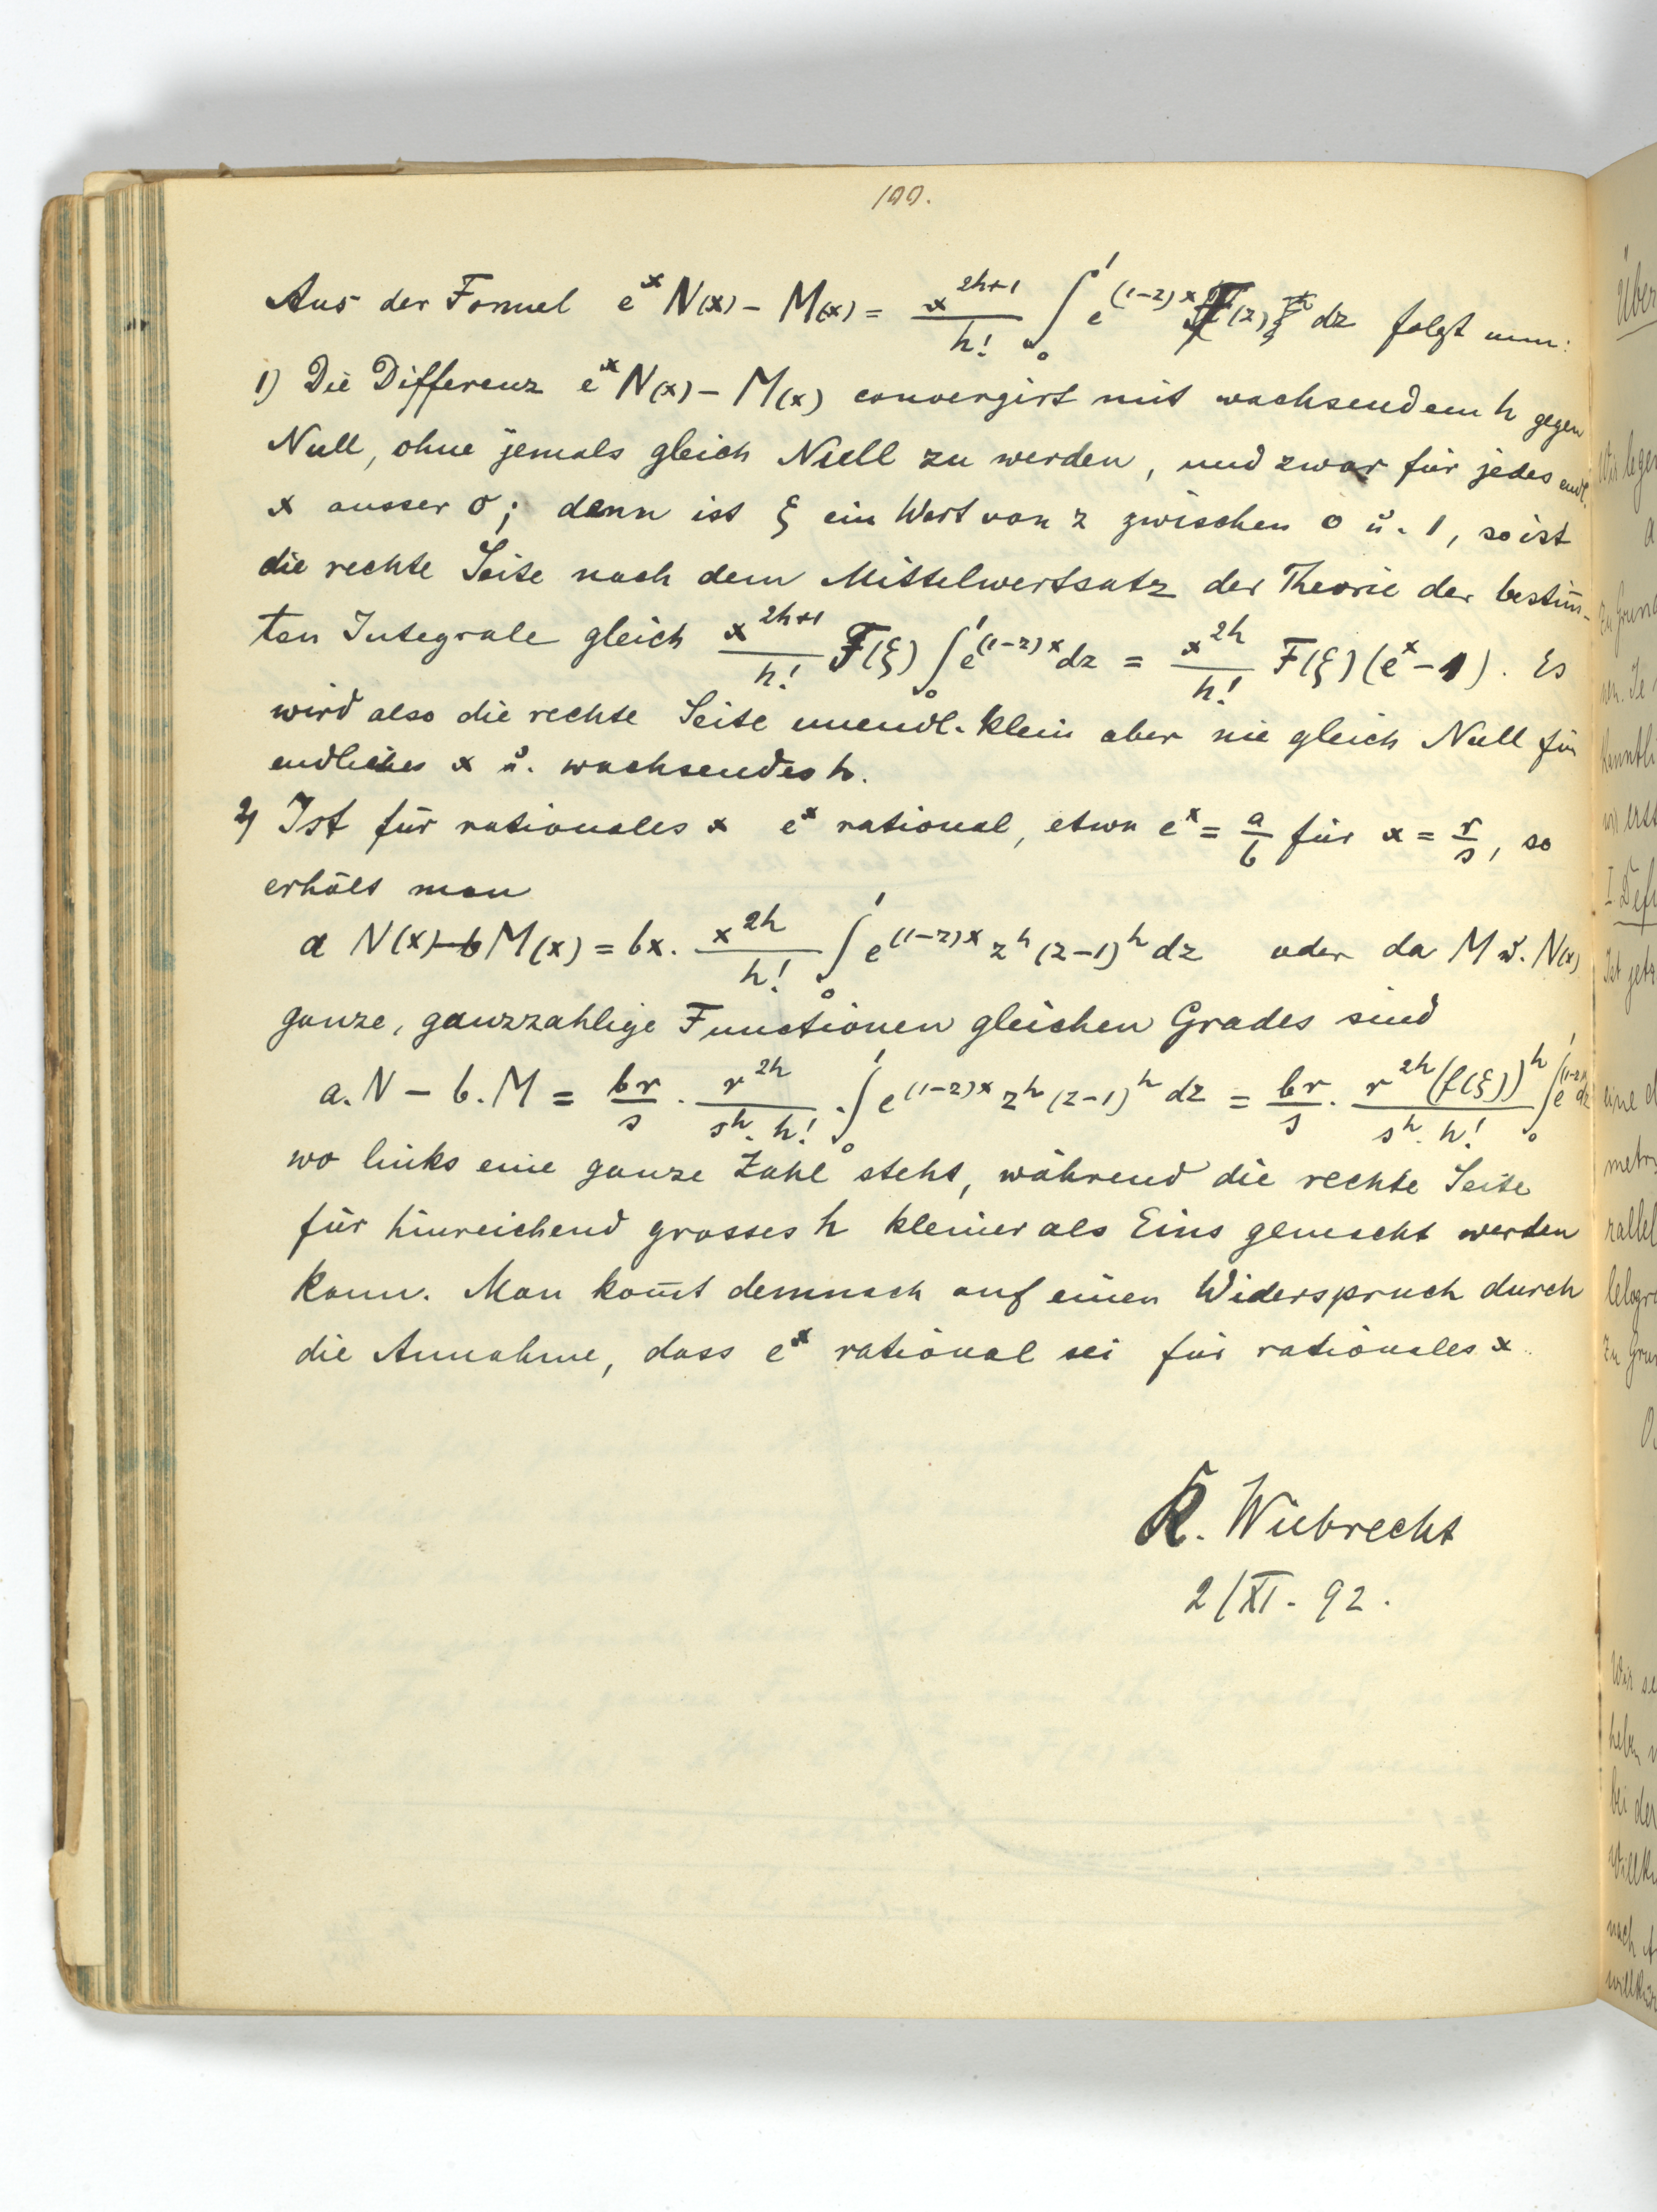 199.
Aus der Formel e^x N(x) - M(x) = x^{2h+1}/h! ∫_0^1 e^{(1-z)x} F(z) dz folgt nun:
1) Die Differenz e^x N(x) - M(x) convergirt mit wachsendem h gegen
Null, ohne jemals gleich Null zu werden, und zwar für jedes endl.
x ausser 0; denn ist ξ ein Wert von z zwischen 0 u. 1, so ist
die rechte Seite nach dem Mittelwertsatz der Theorie der bestim̄-
ten Integrale gleich x^{2h+1}/h! F(ξ) ∫_0^1 e^{(1-z)x} dz = x^{2h}/h! F(ξ)(e^x - 1). Es
wird also die rechte Seite unendl. klein aber nie gleich Null für
endliches x u. wachsendes h.
2) Ist für rationales x e^x rational, etwa e^x = a/b für x = r/s, so
erhält man
a N(x) - b M(x) = bx. x^{2h}/h! ∫_0^1 e^{(1-z)x} z^h (z-1)^h dz oder da M u. N(x)
ganze, ganzzahlige Functionen gleichen Grades sind
a.N - b.M = br/s . r^{2h}/(s^h. h!) . ∫_0^1 e^{(1-z)x} z^h (z-1)^h dz = br/s . r^{2h}(f(ξ))^h/(s^h. h!) ∫_0^1 e^{(1-z)x} dz
wo links eine ganze Zahl steht, während die rechte Seite
für hinreichend grosses h kleiner als Eins gemacht werden
kann. Man kom̄t demnach auf einen Widerspruch durch
die Annahme, dass e^x rational sei für rationales x.
K. Wiebrecht
2/XI. 92.